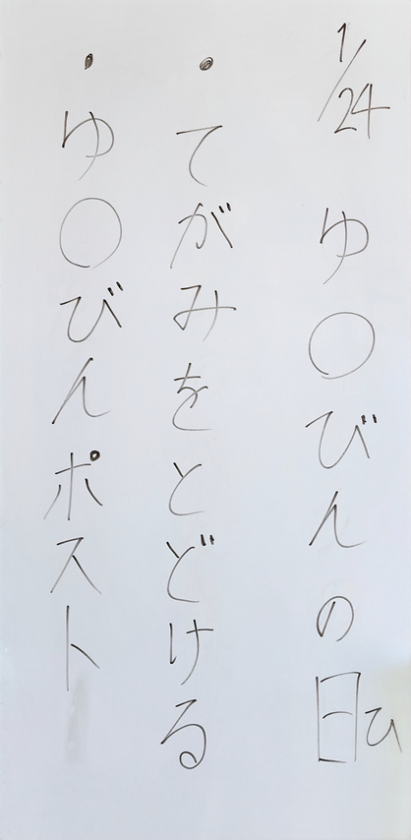 1/24 ゆ〇びんの日ひ
・てがみをとどける
・ゆ〇びんポスト